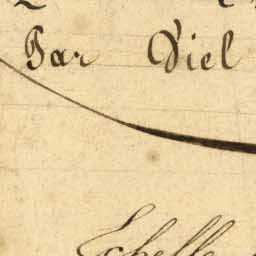 Par Viel
Echelle